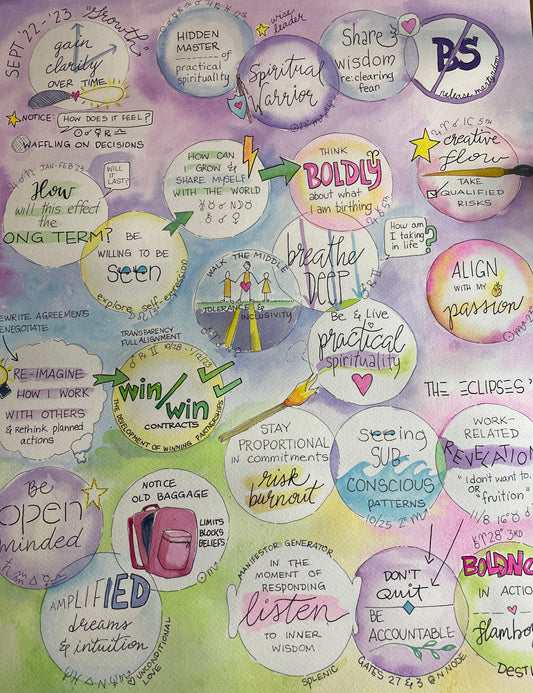 SEPT '22 - '23
"Growth"
gain
clarity
OVER TIME
NOTICE: HOW DOES IT FEEL?
WAFFLING ON DECISIONS
HIDDEN
MASTER
of
practical
spirituality
wise
leader
Spiritual
Warrior
Share
wisdom
re: clearing
fear
BS
release
creative
flow
TAKE
QUALIFIED
RISKS
JAN-FEB
WILL
IT
LAST?
How
will this effect the
ONG TERM?
HOW CAN
I GROW &
SHARE MYSELF
WITH THE WORLD
THINK
BOLDLY
about what
I am birthing
BE
WILLING TO BE
Seen
explore self-expression
WALK THE MIDDLE
TOLERANCE &
INCLUSIVITY
breathe
DEEP
How am
I taking
in life?
ALIGN
WITH MY
passion
Be & Live
practical
spirituality
REWRITE AGREEMENTS
RENEGOTIATE
RE-IMAGINE
HOW I WORK
WITH OTHERS
& RETHINK planned
actions
TRANSPARENCY
FULL ALIGNMENT
10/28 - 1/12/23
win/
win
CONTRACTS
THE DEVELOPMENT OF WINNING PARTNERSHIPS
THE ECLIPSES
STAY
PROPORTIONAL
IN COMMITMENTS
risk
burnout
seeing
SUB
CONSCIOUS
PATTERNS
10/25 2°
WORK-
RELATED
REVELATION
"I don't want to.
OR
"fruition"
11/8 16°
28° 3RD
Be
open
minded
NOTICE
OLD BAGGAGE
LIMITS
BLOCKS
BELIEFS
AMPLIFIED
dreams
& intuition
UNCONDITIONAL
LOVE
MANIFESTOR GENERATOR
IN THE
MOMENT OF
RESPONDING
listen
TO INNER
WISDOM
SPLENIC
DON'T
Quit
BE
ACCOUNTABLE
GATES 27 & 3 @ N NODE
BOLDNE
IN ACTION
flambo
DESTI